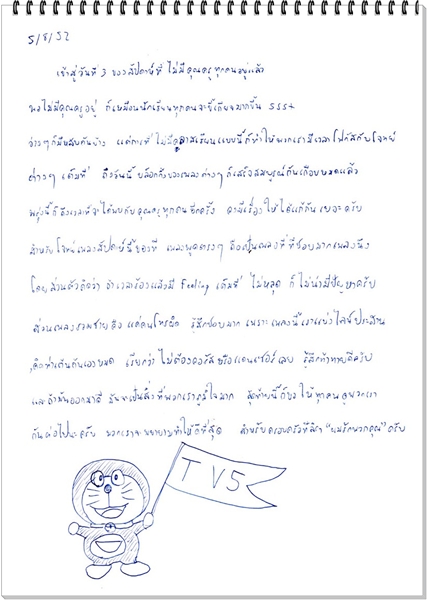 5/8/52
เข้าสู่วันที่ 3 ของสัปดาห์ที่ ไม่มีคุณครูทุกคนอยู่แล้ว
พอไม่มีคุณครูอยู่ ก็เหมือนนักเรียนทุกคนจะขี้เกียจมากขึ้น 555+
ว่างๆก็มีหลับกันบ้าง แต่การที่ไม่มีคลาสเรียนแบบนี้ก็ทำให้พวกเรามีเวลาโฟกัสกับโจทย์
ต่างๆ เต็มที่ ถึงวันนี้ บล็อกกิ้งของเพลงต่างๆ ก็เสร็จสมบูรณ์กันเกือบหมดแล้ว
พรุ่งนี้ก็ถึงเวลาที่จะได้พบกับคุณครูทุกคนอีกครั้ง คงมีเรื่องให้ได้แก้กันเยอะครับ
สำหรับโจทย์เพลงสัปดาห์นี้ของพี่ เพลงพูดตรงๆ ถือเป็นเพลงที่พี่ชอบมากเพลงนึง
โดยส่วนตัวคิดว่า ถ้าเวลาร้องแล้วมี Feeling เต็มที่ ไม่หลุด ก็ไม่น่ามีปัญหาครับ
ส่วนเพลงรวมชายคือ แค่คนโทรผิด รู้สึกชอบมาก เพราะเพลงนี้เราแบ่งไลน์ประสาน
,คิดท่าเต้นกันเองหมด เรียกว่าไม่ต้องคอรัสหรือแดนเซอร์เลย รู้สึกท้าทายดีครับ
และถ้ามันออกมาดี มันจะเป็นสิ่งที่พวกเราภูมิใจมาก สุดท้ายนี้ก็ขอให้ทุกคนดูพวกเรา
กันต่อไปนะครับ พวกเราจะพยายามทำให้ดีที่สุด สำหรับครอบครัวที่ "ผมรักพวกคุณ" ครับ
TV5